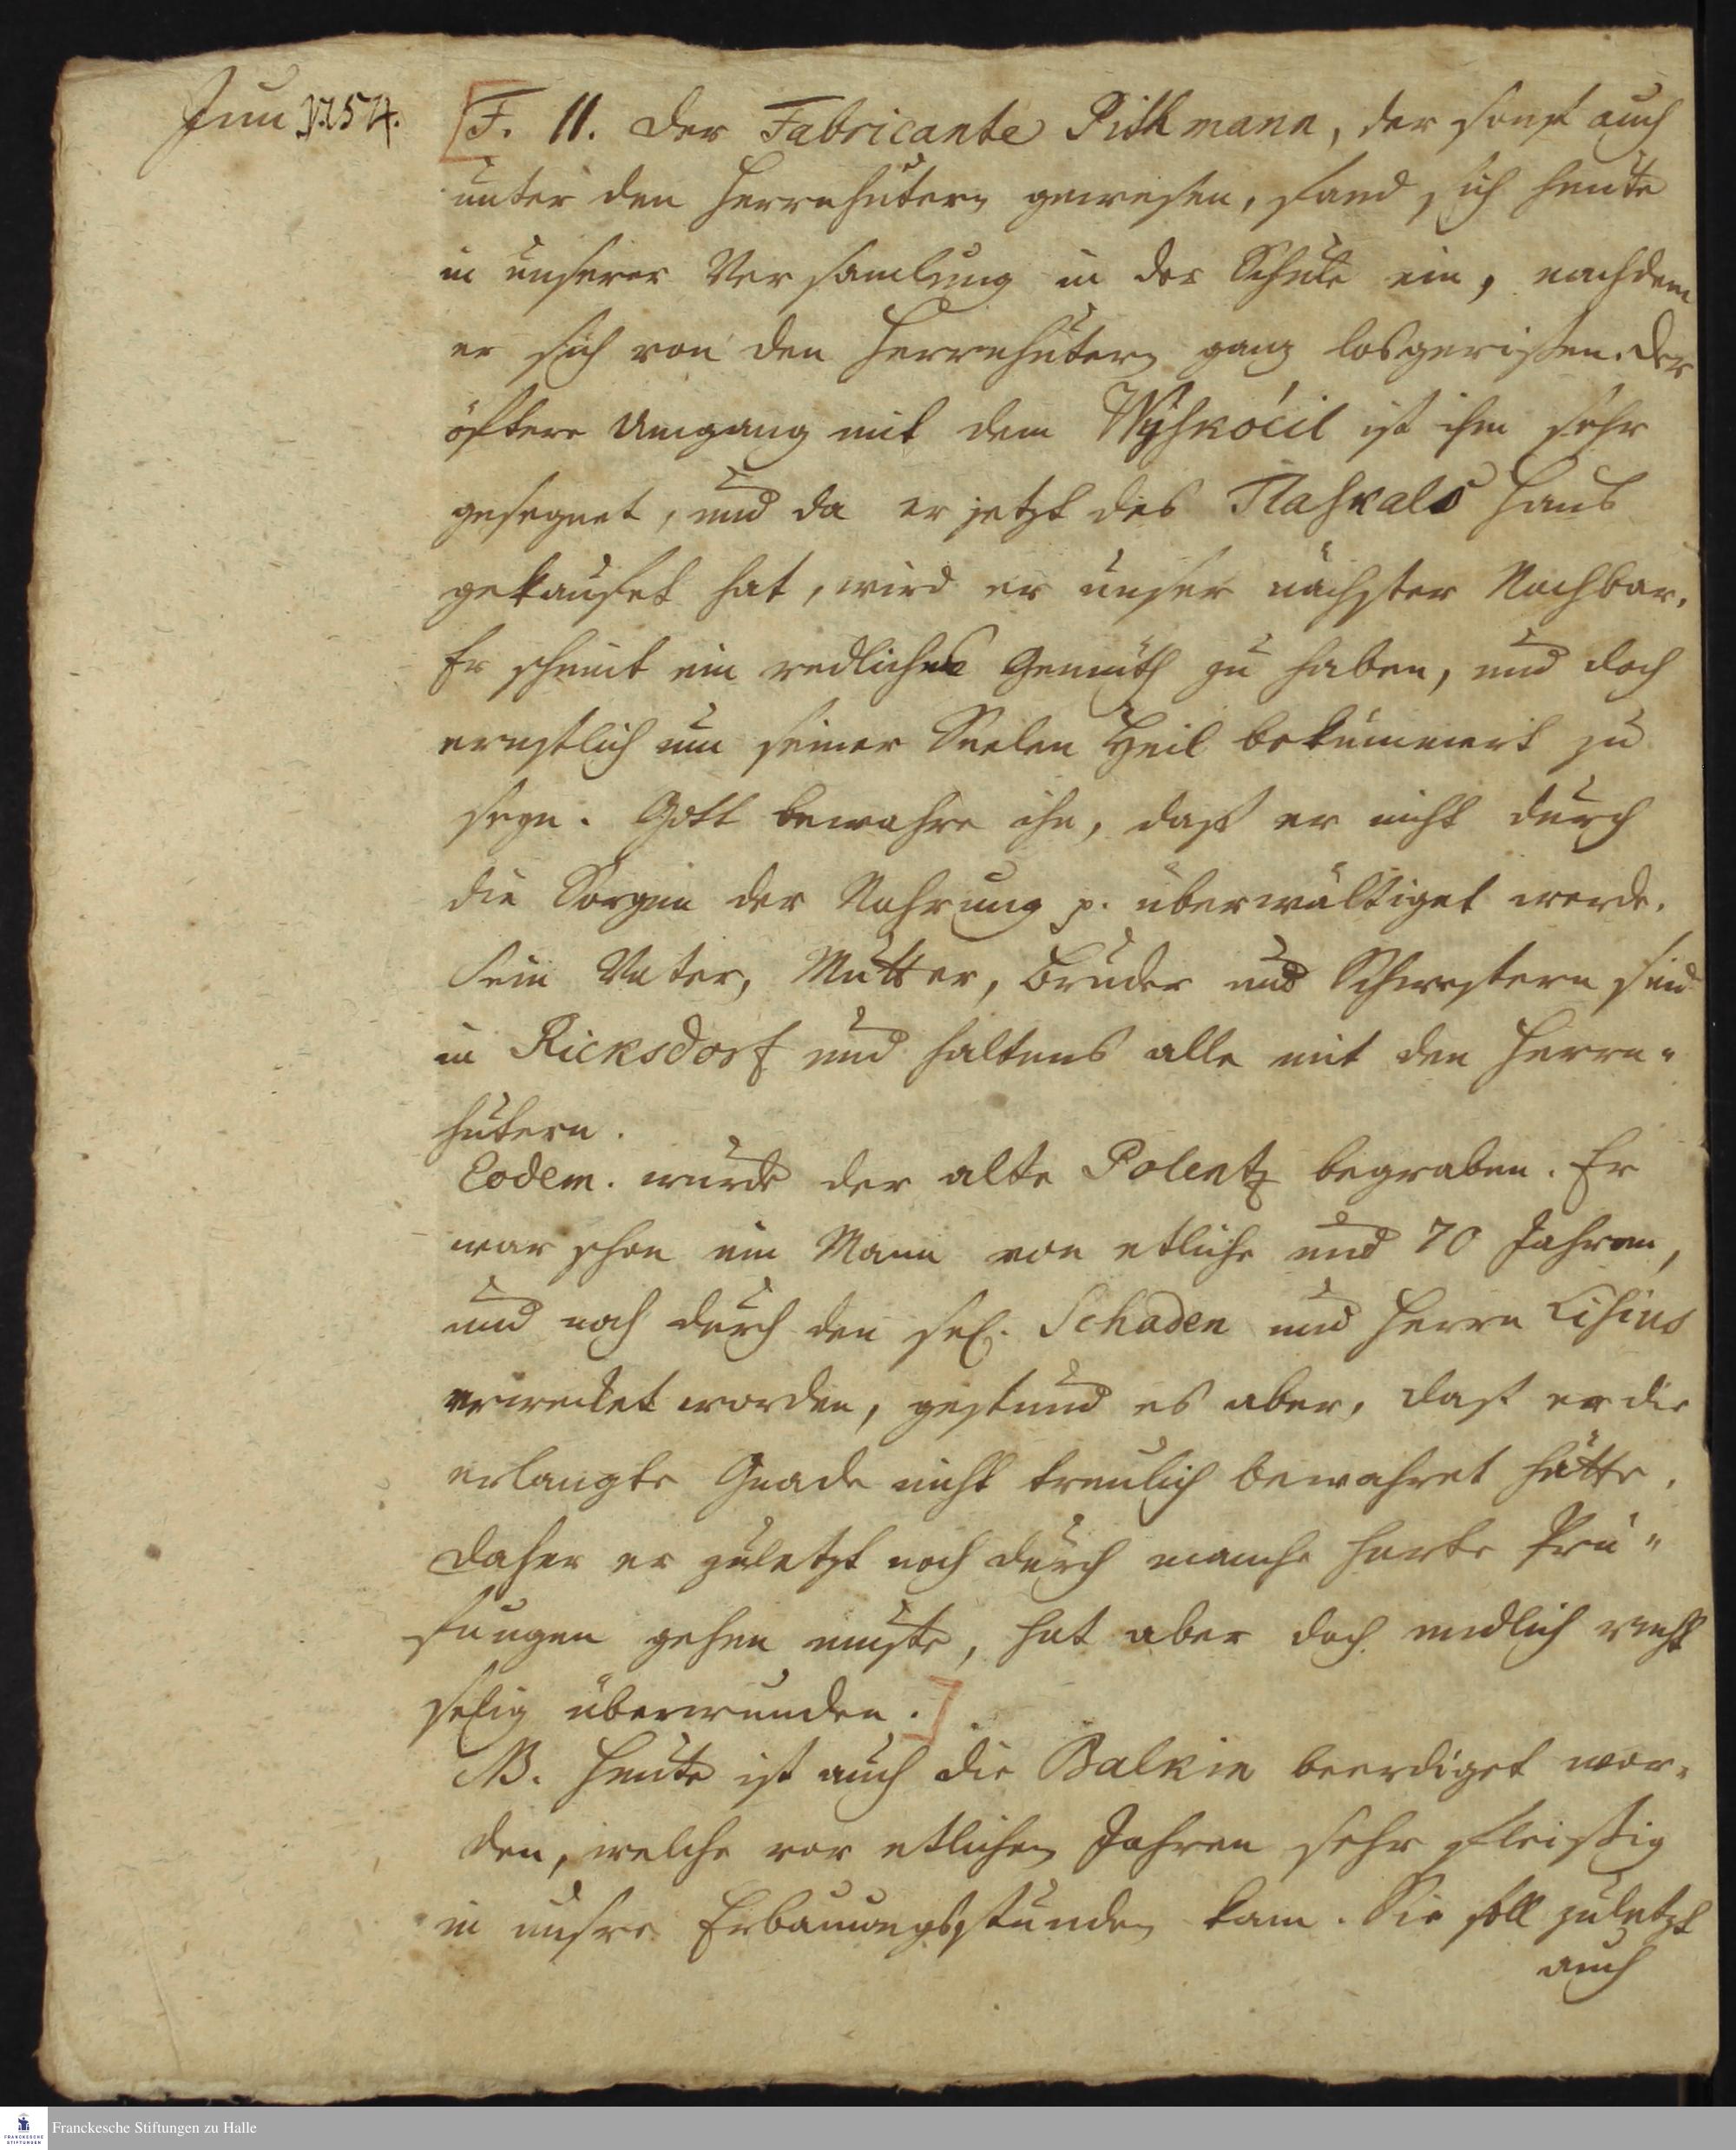 Jun 1754.
F. 11. der Fabricante Pithmann, der sonst auch
unter den Herrnhutern gewesen, fand sich heute
in unserer Versamlung in der Schule ein, nachdem
er sich von den Herrnhutern ganz losgerissen. Der
öftere Umgang mit dem Wyskočil ist ihm sehr
gesegnet, und da er jetzt des Tlaskals Haus
gekaufet hat, wird er unser nächster Nachbar.
Er scheint ein redliches Gemüth zu haben, und doch
ernstlich um seiner Seelen Heil bekümmert zu
seyn. Gott bewahre ihn, dass er nicht durch
die Sorgen der Nahrung p. überwältiget werde.
Sein Vater, Mutter, Bruder und Schwestern sind
in Ricksdorf und haltens alle mit den Herrn-
hutern.
Eodem. wurde der alte Polentz begraben. Er
war schon ein Mann von etliche und 70 Jahren,
und noch durch den sel. Schaden und Herrn Lisius
erwecket worden, gestund es aber, dass er die
erlangte Gnade nicht treulich bewahret hätte,
daher er zuletzt noch durch manche harte Prü-
fungen gehen muste, hat aber doch endlich recht
selig überwunden.
NB. Heute ist auch die Balkin beerdiget wor-
den, welche vor etlichen Jahren sehr fleissig
in unsre Erbauungsstunden kam. Sie soll zuletzt
auch
FRANCKESCHE
STIFTUNGEN
Franckesche Stiftungen zu Halle